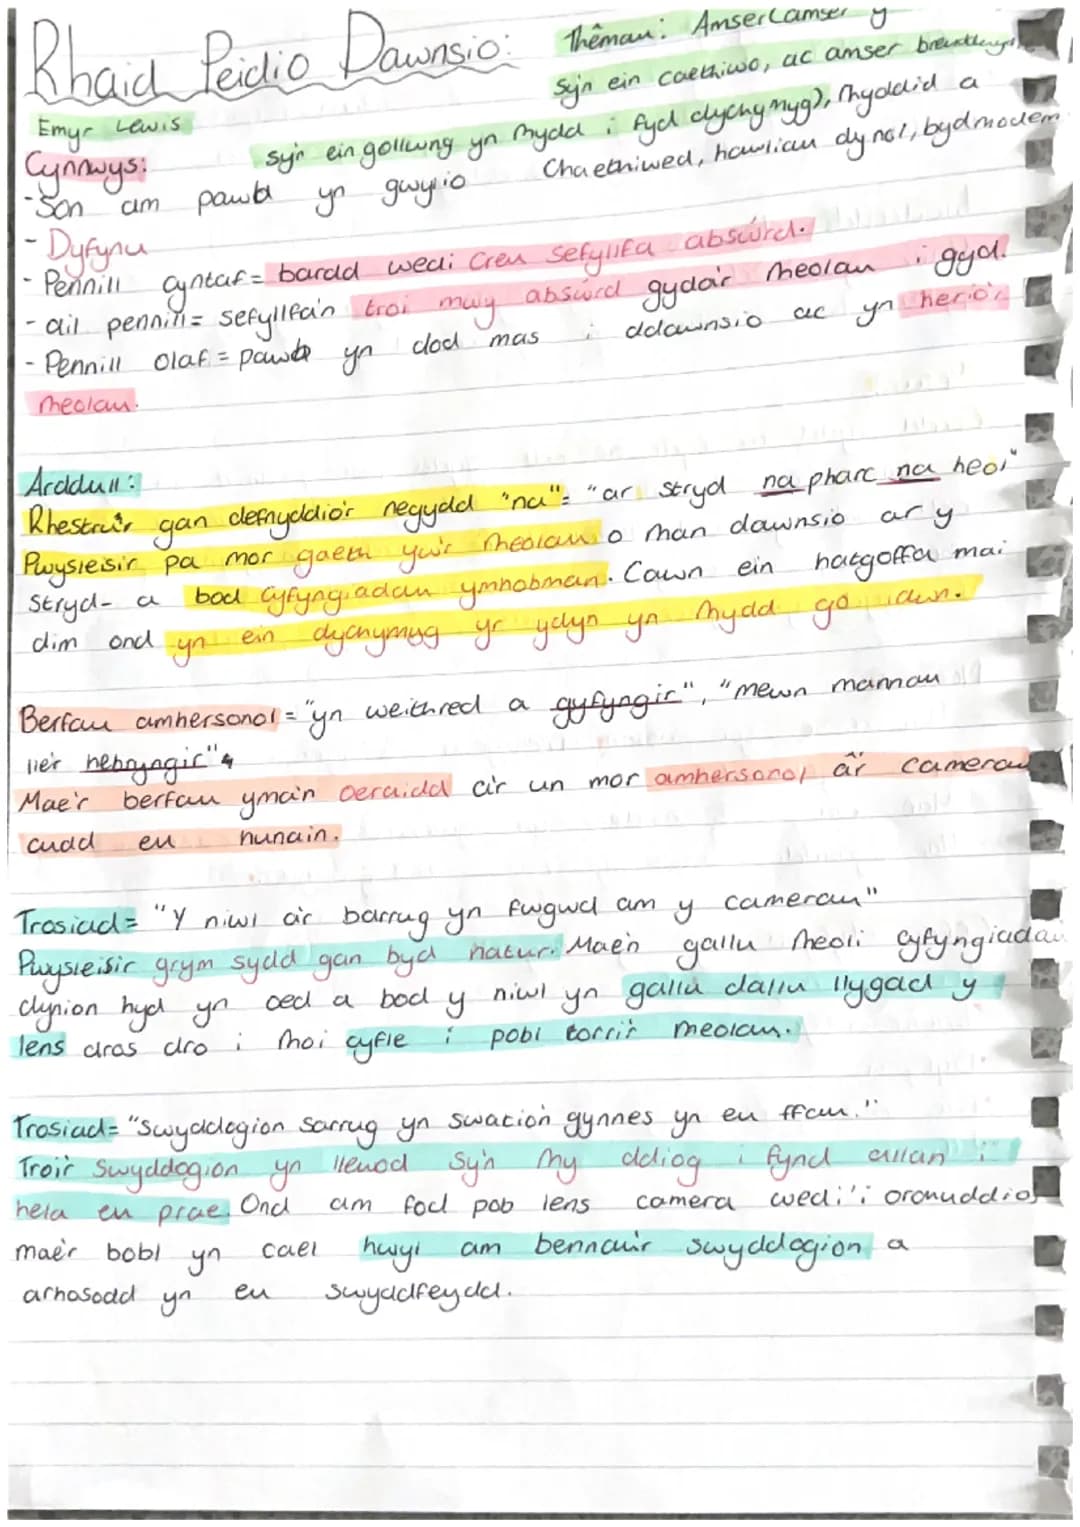 Rhaid Peidio Dawnsio:
Thêmau: Amser (amser y
syn ein caethiwo, ac amser
Emyr Lewis
syn ein gollwng yn rhydd i fyd dychymyg), rhyddid a
Chaethiwed, hawliau dynol, byd modern
Cynnwys:
- Sôn am pawb yn gwylio
- Dyfynu
- Pennill cyntaf = bardd wedi creu sefyllfa absẃrd.
- ail pennill = sefyllfa'n troi mwy absẃrd gyda'r rheolau i gyd.
- Pennill olaf = pawb yn dod mas i ddawnsio ac yn herio'r
rheolau.
Arddull:
Rhestru'r gan defnyddio'r negydd "na" = "ar stryd na pharc na heol"
Pwysleisir pa mor gaeth yw'r rheolau o rhan dawnsio ar y
Stryd- a bod cyfyngiadau ymhobman. Cawn ein hatgoffa mai
dim ond yn ein dychymyg yr ydyn yn rhydd go iawn.
Berfau amhersonol = "yn weithred a gyfyngir", "mewn mannau
lle'r hebryngir"
Mae'r berfau yma'n oeraidd a'r un mor amhersonol â'r camerau
cudd eu hunain.
Trosiad = "Y niwl a'r barrug yn fwgwd am y camerau"
Pwysleisir grym sydd gan byd natur. Mae'n gallu rheoli cyfyngiadau
dynion hyd yn oed a bod y niwl yn gallu dallu llygad y
lens dros dro i rhoi cyfle i pobl torri'r rheolau.
Trosiad = "Swyddogion sarrug yn swatio'n gynnes yn eu ffau."
Troi'r Swyddogion yn llewod sy'n rhy ddiog i fynd allan i
hela eu prae. Ond am fod pob lens camera wedi'i orchuddio,
mae'r bobl yn cael hwyl am bennau'r swyddogion a
arhosodd yn eu swyddfeydd.